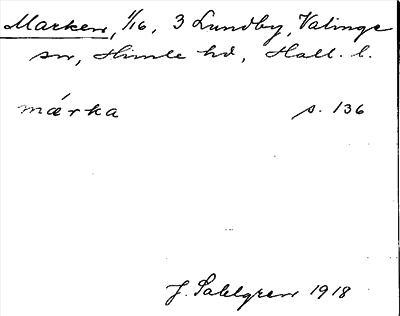 Marken, 1/16, 3 Lundby, Valinge
sn, Himle hd, Hall. l.
mærka s. 136
J. Sahlgren 1918